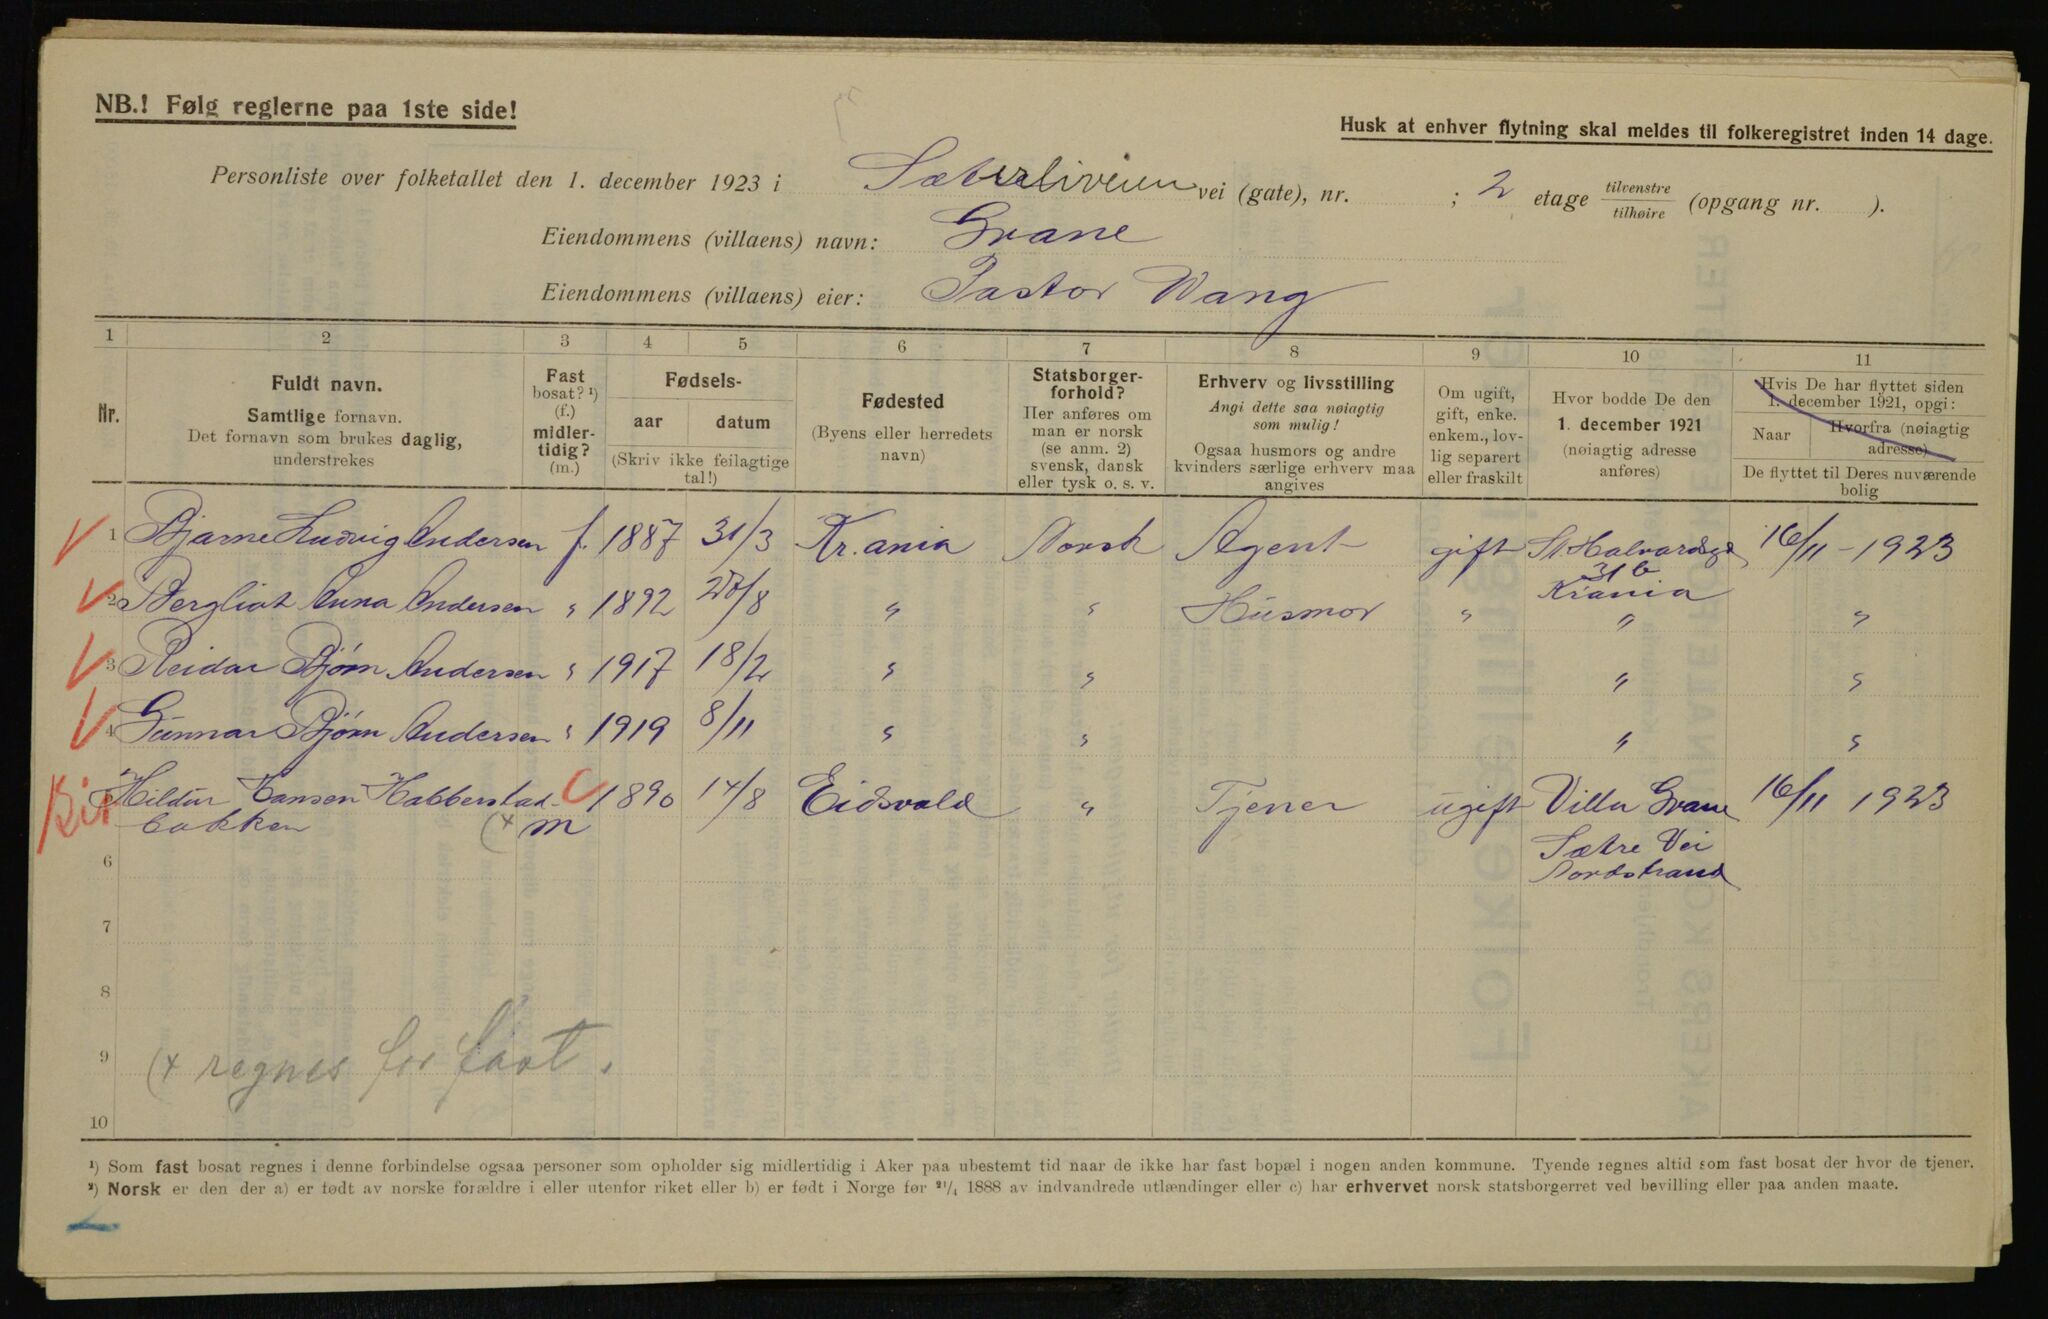 NB.! Følg reglerne paa 1ste side!
Husk at enhver flytning skal meldes til folkeregistret inden 14 dage.
Personliste over folketallet den 1. december 1923 i Sæterliveien vei (gate), nr. ; 2 etage tilvenstre/tilhøire (opgang nr. ).
Eiendommens (villaens) navn: Grane
Eiendommens (villaens) eier: Pastor Wang
1 2 3 4 5 6 7 8 9 10 11
Nr.
Fuldt navn.
Samtlige fornavn.
Det fornavn som brukes daglig,
understrekes
Fast
bosat? ¹)
(f.)
midler-
tidig?
(m.)
Fødsels-
aar datum
(Skriv ikke feilagtige
tal!)
Fødested
(Byens eller herredets
navn)
Statsborger-
forhold?
Her anføres om
man er norsk
(se anm. 2)
svensk, dansk
eller tysk o. s. v.
Erhverv og livsstilling
Angi dette saa nøiagtig
som mulig!
Ogsaa husmors og andre
kvinders særlige erhverv maa
angives
Om ugift,
gift, enke.
enkem., lov-
lig separert
eller fraskilt
Hvor bodde De den
1. december 1921
(nøiagtig adresse
anføres)
Hvis De har flyttet siden
1. december 1921, opgi:
Naar Hvorfra (nøiagtig
adresse)
De flyttet til Deres nuværende
bolig
1 Bjarne Ludvig Andersen f. 1887 31/3 Kr.ania Norsk Agent gift St Halvardsgt 16/11 - 1923
31 b
Krania
2 Bergliot Anna Andersen " 1892 28/8 " " Husmor " " "
3 Reidar Bjørn Andersen " 1917 18/2 " " " "
4 Gunnar Bjørn Andersen " 1919 8/11 " " " "
5 Hildur Hansen Habberstad- C 1890 14/8 Eidsvold " Tjener ugift Villa Grane 16/11 1923
bakken (x m
Sætre Vei
Nordstrand
6
7
8
9 (x regnes for fast.
10
¹) Som fast bosat regnes i denne forbindelse ogsaa personer som opholder sig midlertidig i Aker paa ubestemt tid naar de ikke har fast bopæl i nogen anden kommune. Tyende regnes altid som fast bosat der hvor de tjener.
²) Norsk er den der a) er født av norske forældre i eller utenfor riket eller b) er født i Norge før 21/4 1888 av indvandrede utlændinger eller c) har erhvervet norsk statsborgerret ved bevilling eller paa anden maate.